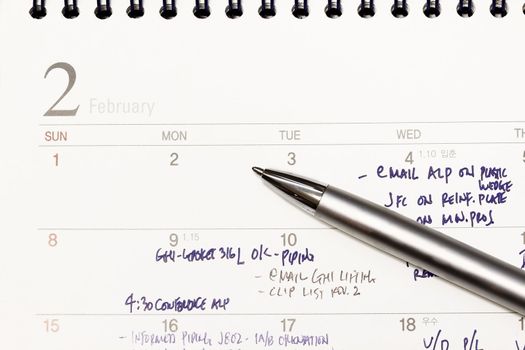 2 February
SUN MON TUE WED TH
1 2 3 4 1.10 입춘 5
- EMAIL ALP ON PLASTIC
WEDGE
JFC ON REINF. PLATE
ON MN. PROJ
8 9 1.15 10
316L OK-PIPING
- EMAIL GHI LIFTING
- CLIP LIST REV. 2
4:30 CONFERENCE ALP
15 16 17 18 우수
PIPING
V/D P/L